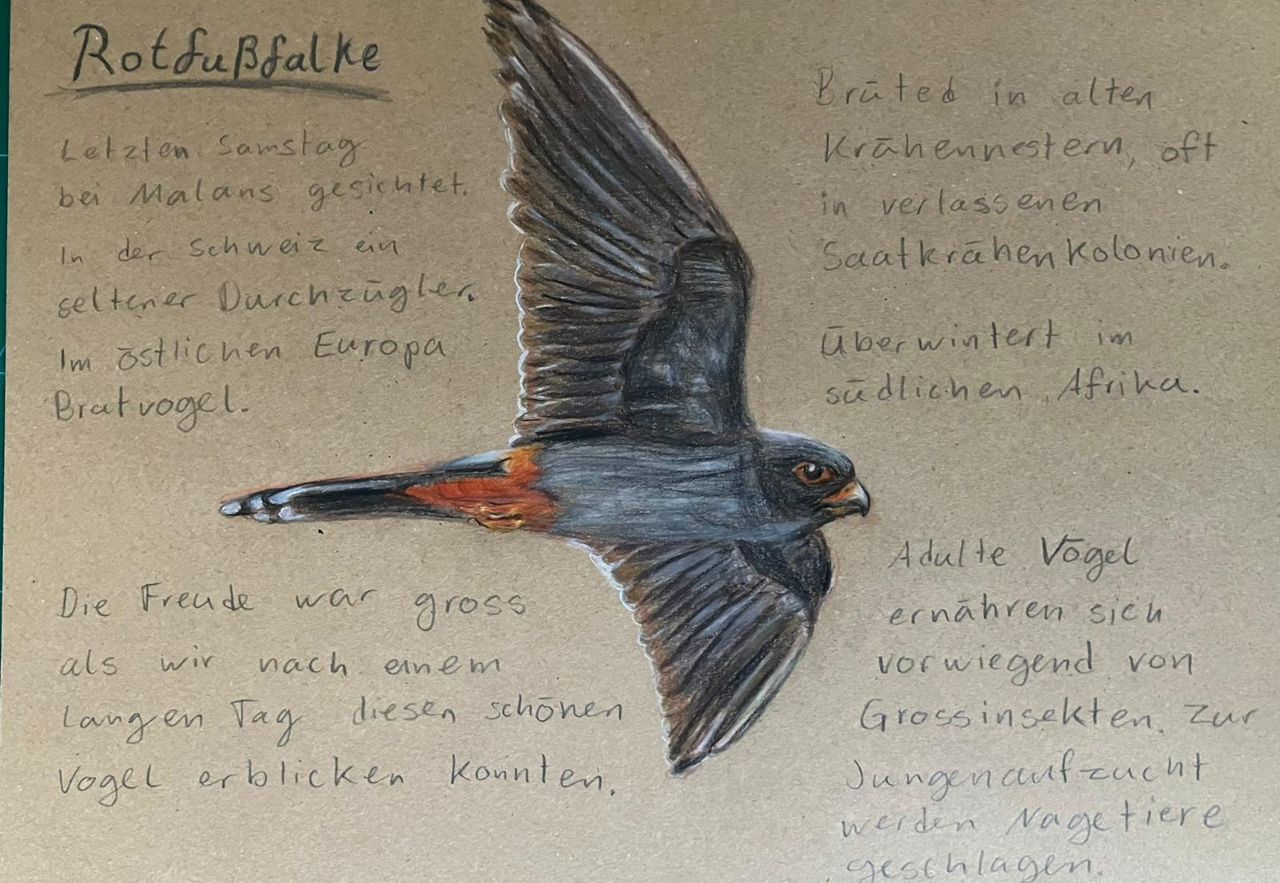 Rotfußfalke
Letzten Samstag
bei Malans gesichtet.
In der Schweiz ein
seltener Durchzügler.
Im östlichen Europa
Brutvogel.
Die Freude war gross
als wir nach einem
langen Tag diesen schönen
Vogel erblicken konnten.
Brütet in alten
Krähennestern, oft
in verlassenen
Saatkrähenkolonien.
Überwintert im
südlichen Afrika.
Adulte Vögel
ernähren sich
vorwiegend von
Grossinsekten. Zur
Jungenaufzucht
werden Nagetiere
geschlagen.